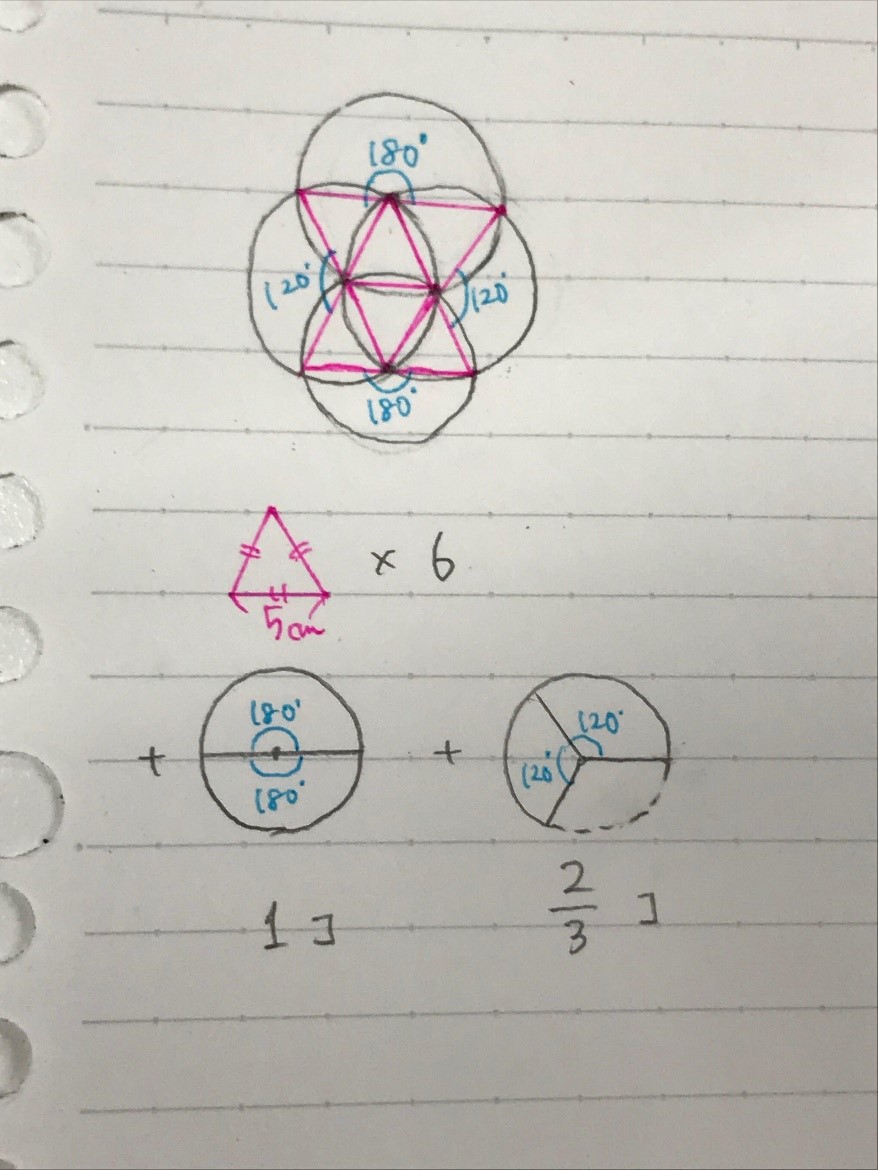 180°
120° 120°
180°
× 6
5cm
180° 120°
+ + 120°
180°
1 コ 2/3 コ